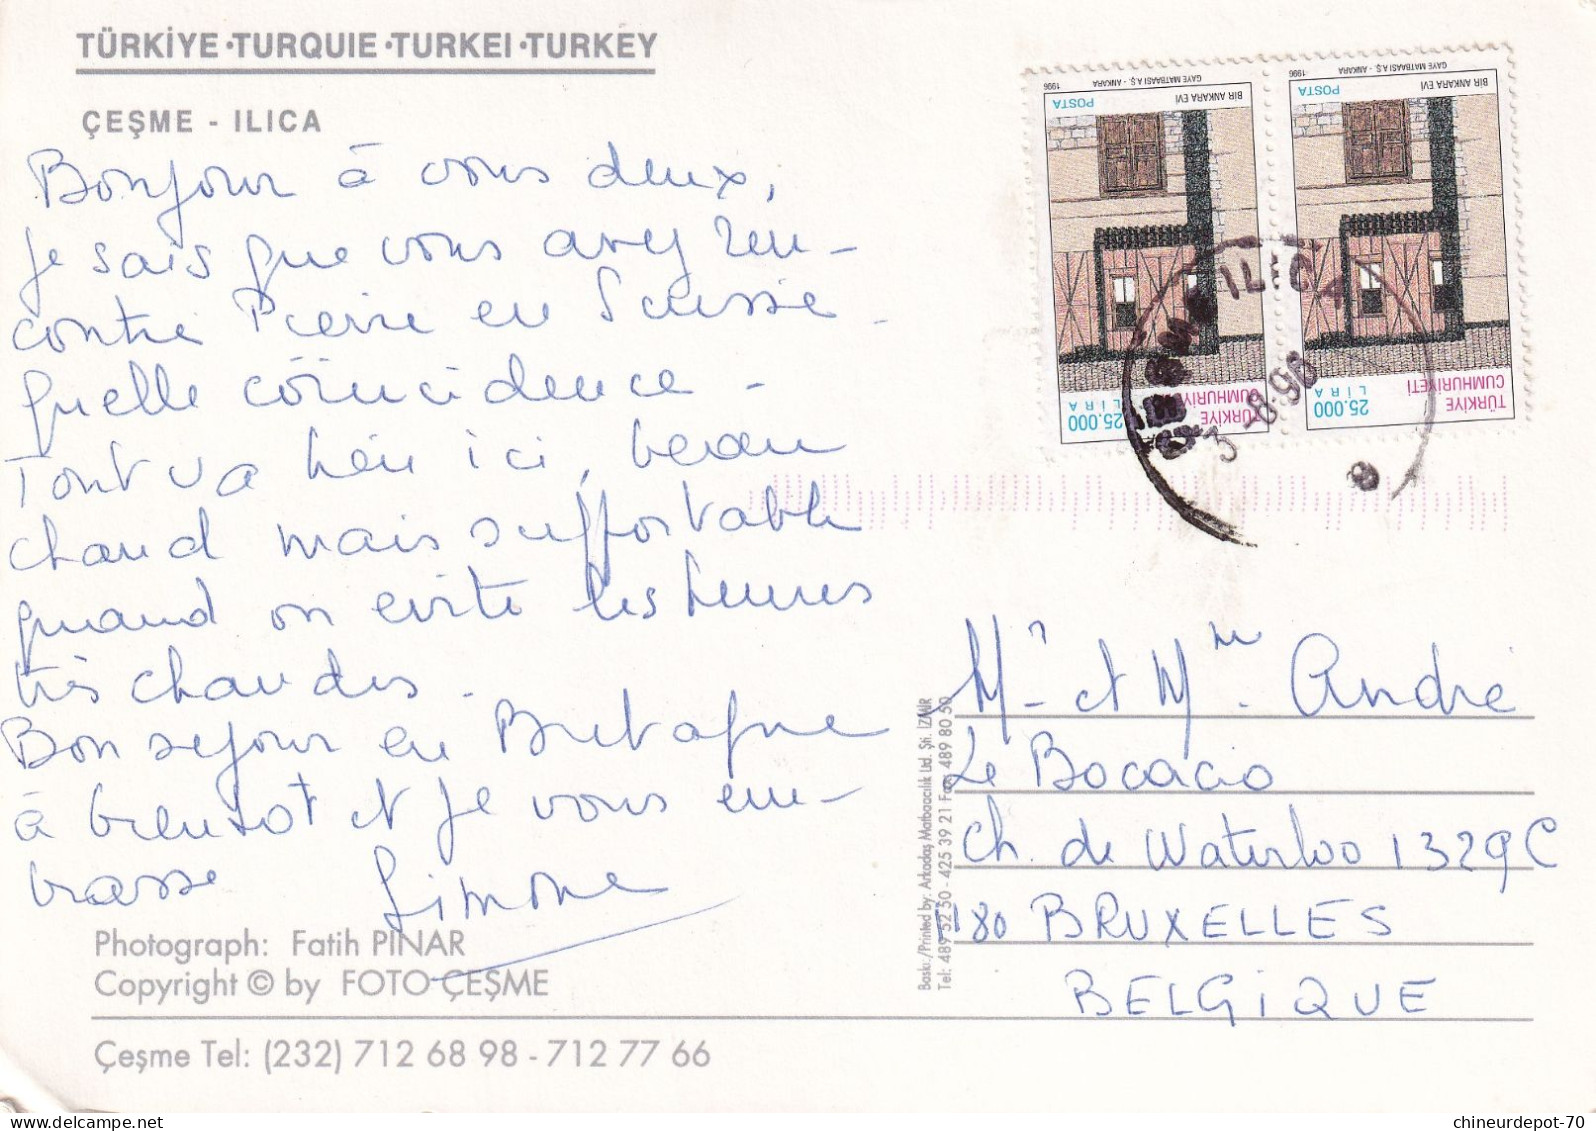 TÜRKİYE • TURQUIE • TURKEI • TURKEY
ÇEŞME - ILICA
Bonjour à vous deux,
je sais que vous avez ren-
contré Pierre en Suisse.
Quelle coïncidence -
Tout va bien ici, beau
chaud mais suffortable
quand on évite les heures
très chaudes.
Bon séjour en Bretagne
à bientôt et je vous em-
brasse Simone
Photograph: Fatih PINAR
Copyright © by FOTO-ÇEŞME
Çeşme Tel: (232) 712 68 98 - 712 77 66
Baskı:/Printed by. Arkadaş Matbaacılık Ltd. Şti. İZMİR
Tel: 489 52 50 - 425 39 21 Fax: 489 80 50
GAYE MATBAASI A.Ş. - ANKARA 1996
BİR ANKARA EVİ
POSTA
25.000
LİRA
TÜRKİYE
CUMHURİYETİ
GAYE MATBAASI A.Ş. - ANKARA 1996
BİR ANKARA EVİ
POSTA
25.000
LİRA
TÜRKİYE
CUMHURİYETİ
ILICA
3-8-96
Mr et Mme André
Le Bocacio
Ch. de Waterloo 1329C
1180 BRUXELLES
BELGIQUE
chineurdepot-70